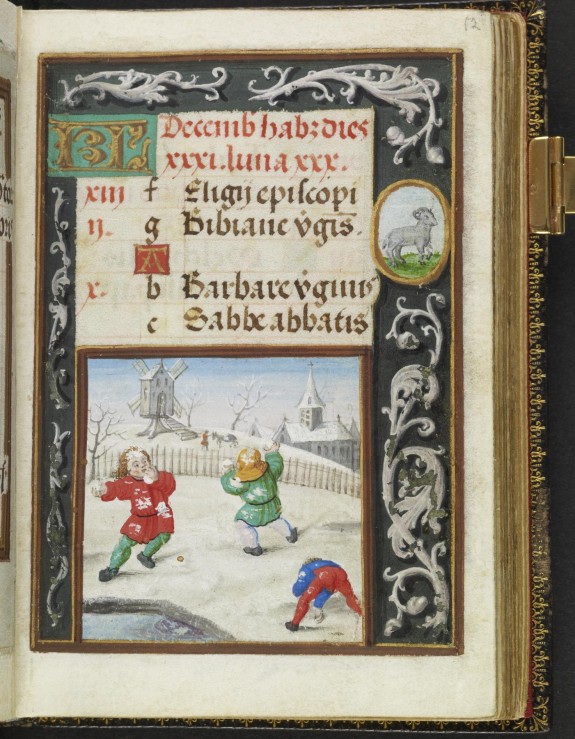 52
KL Decemb habz dies
xxxi. luna xxx.
xiii f Eligii episcopi
ij. g Bibiane v̄gis.
A
x. b Barbare v̄ginis
c Sabbe abbatis